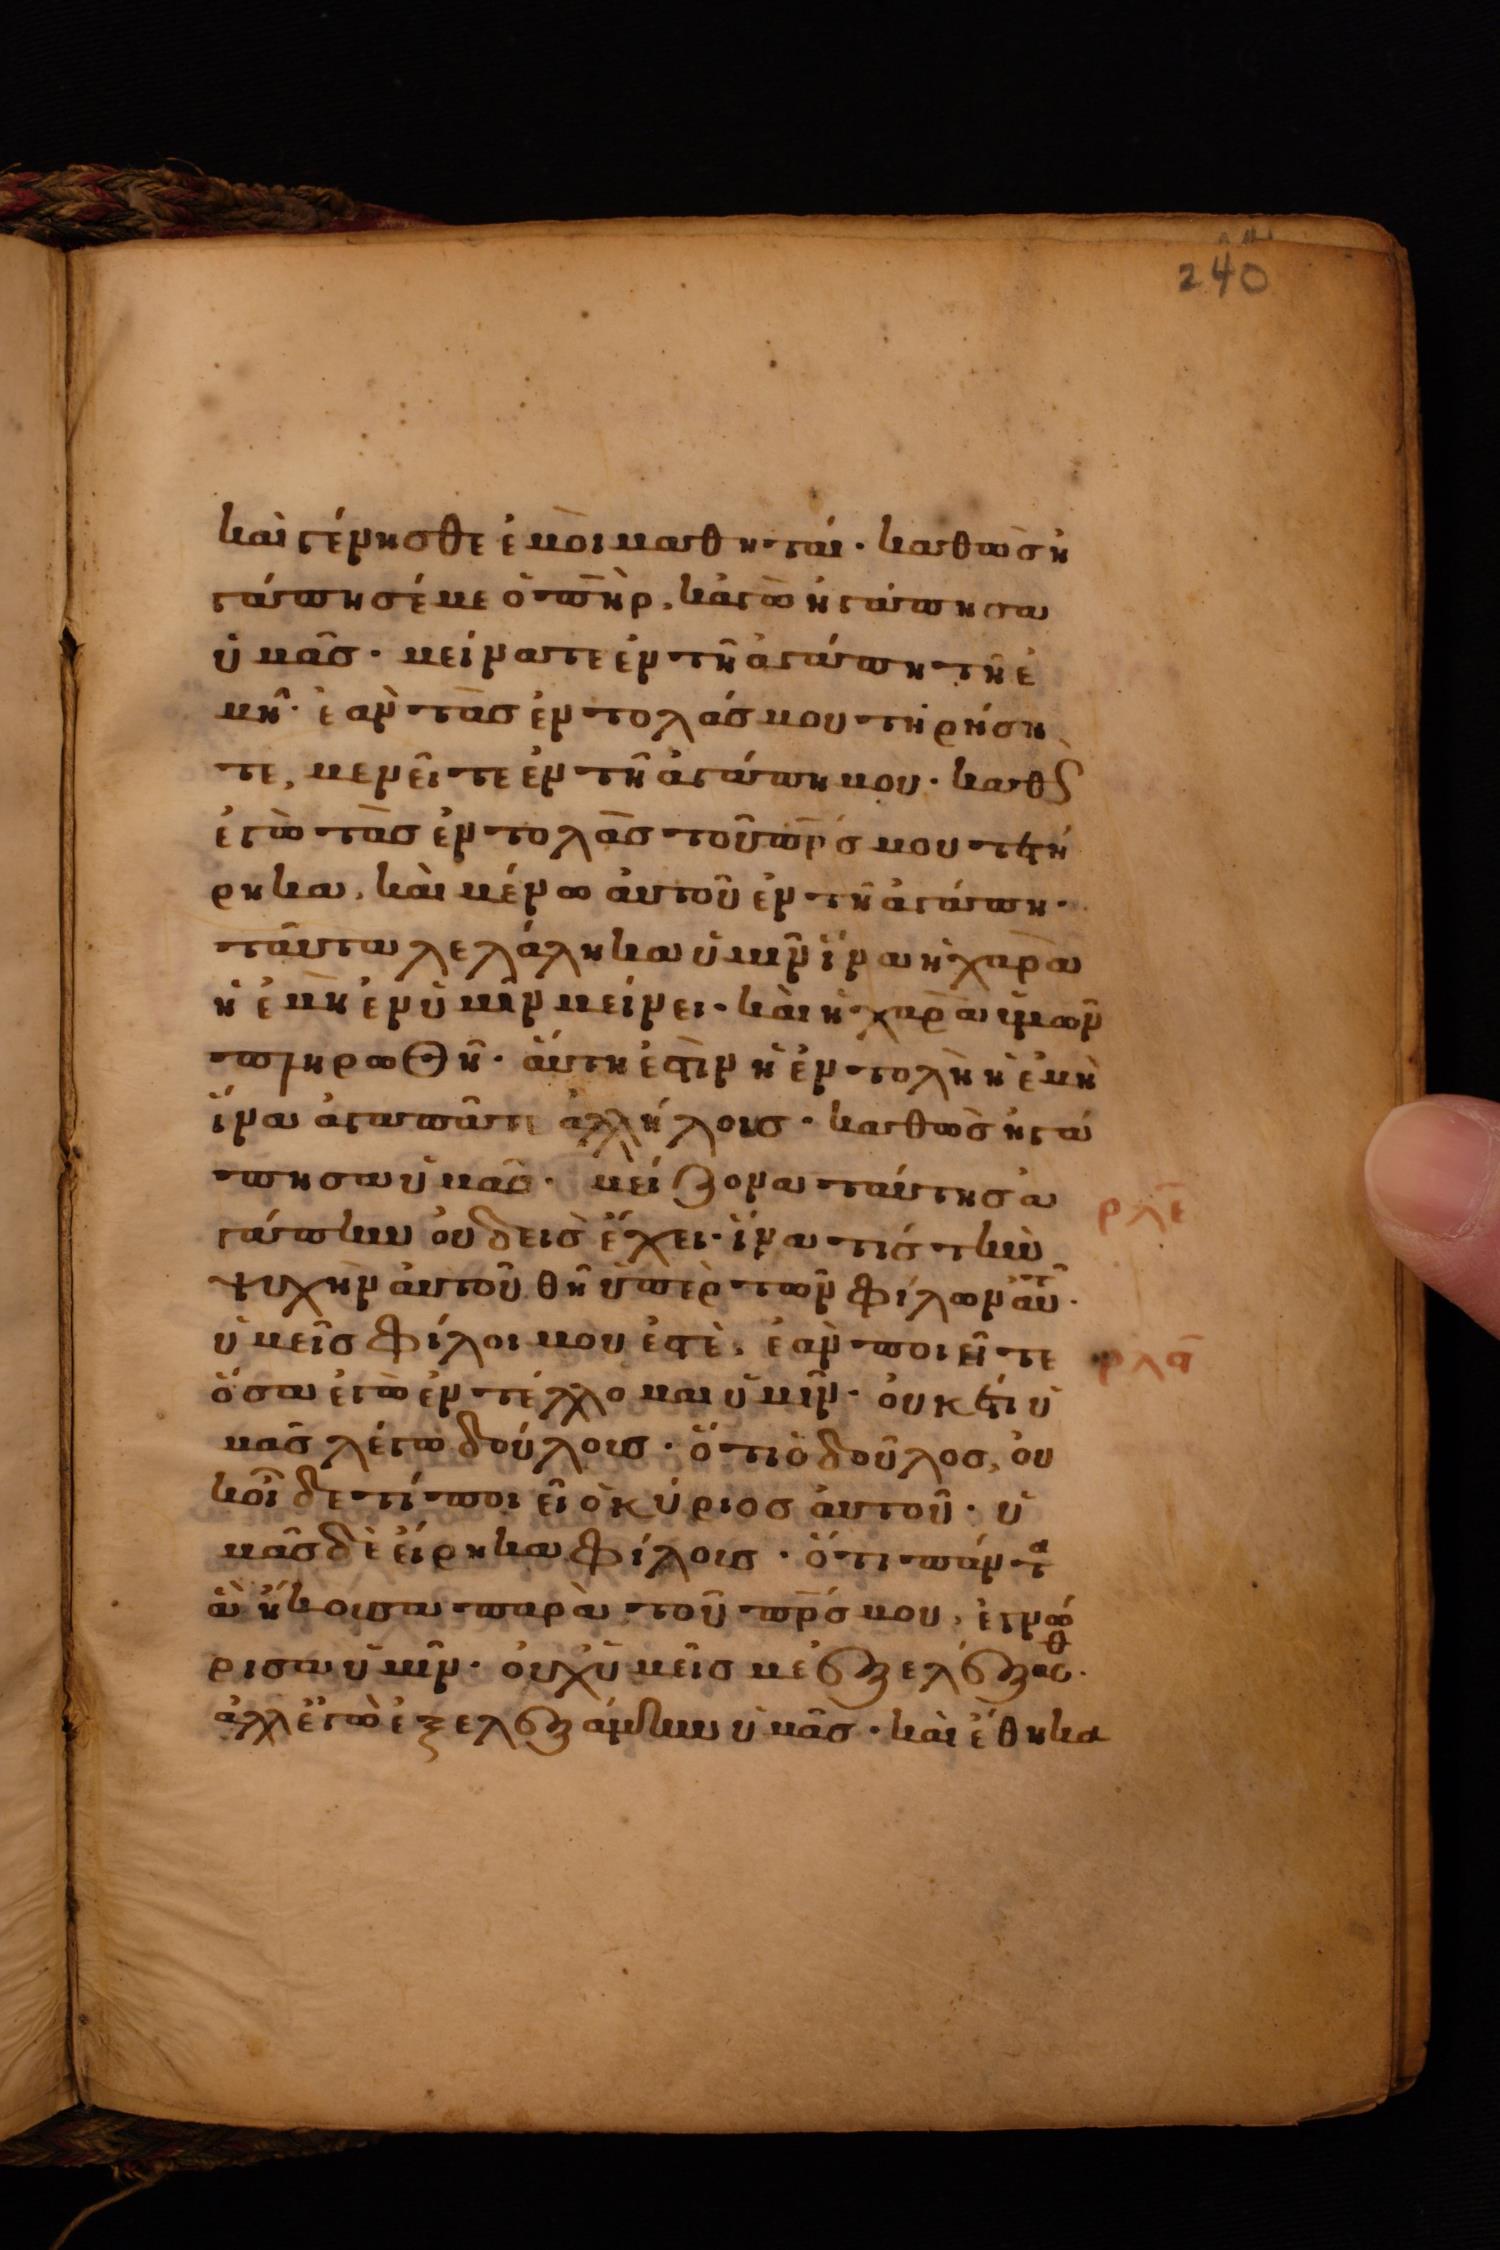 240
καὶ γένησθε ἐμοὶ μαθηταί· καθὼς ἠ
γάπησέ με ὁ πηρ, κἀγὼ ἠγάπησα
ὑμᾶς· μείνατε ἐν τῆ ἀγάπη τῆ ἐ
μῆ· ἐὰν τὰς ἐντολάς μου τηρήση
τε, μενεῖτε ἐν τῆ ἀγάπη μου· καθς
ἐγὼ τὰς ἐντολὰς τοῦ πρς μου τετή
ρηκα, καὶ μένω αὐτοῦ ἐν τῆ ἀγάπη·
ταῦτα λελάληκα ὑμῖν ἵνα ἡ χαρὰ
ἡ ἐμὴ ἐν ὑμῖν μείνει· καὶ ἡ χαρὰ ὑμῶν
πληρωθῆ· αὕτη ἐστὶν ἡ ἐντολὴ ἡ ἐμὴ
ἵνα ἀγαπᾶτε ἀλλήλους· καθὼς ἠγά
πησα ὑμᾶς· μείζονα ταύτης ἀ
γάπην οὐδεὶς ἔχει· ἵνα τίς τὴν
ψυχὴν αὐτοῦ θῆ ὑπὲρ τῶν φίλων αὐτ·
ρλε
ὑμεῖς φίλοι μου ἐστὲ, ἐὰν ποιεῖτε
ρλς
ὅσα ἐγὼ ἐντέλλομαι ὑμῖν· οὐκέτι ὑ
μᾶς λέγω δούλους· ὅτι ὁ δοῦλος, οὐ
κοῖδε τί ποιεῖ ὁ κύριος αὐτοῦ· ὑ
μᾶς δὲ εἴρηκα φίλους· ὅτι πάντα
ἃ ἤκουσα παρὰ τοῦ πρς μου, ἐγνώ
ρισα ὑμῖν· οὐχ ὑμεῖς μὲ ἐξελέξασθ·
ἀλλ ἐγὼ ἐξελεξάμην ὑμᾶς· καὶ ἔθηκα